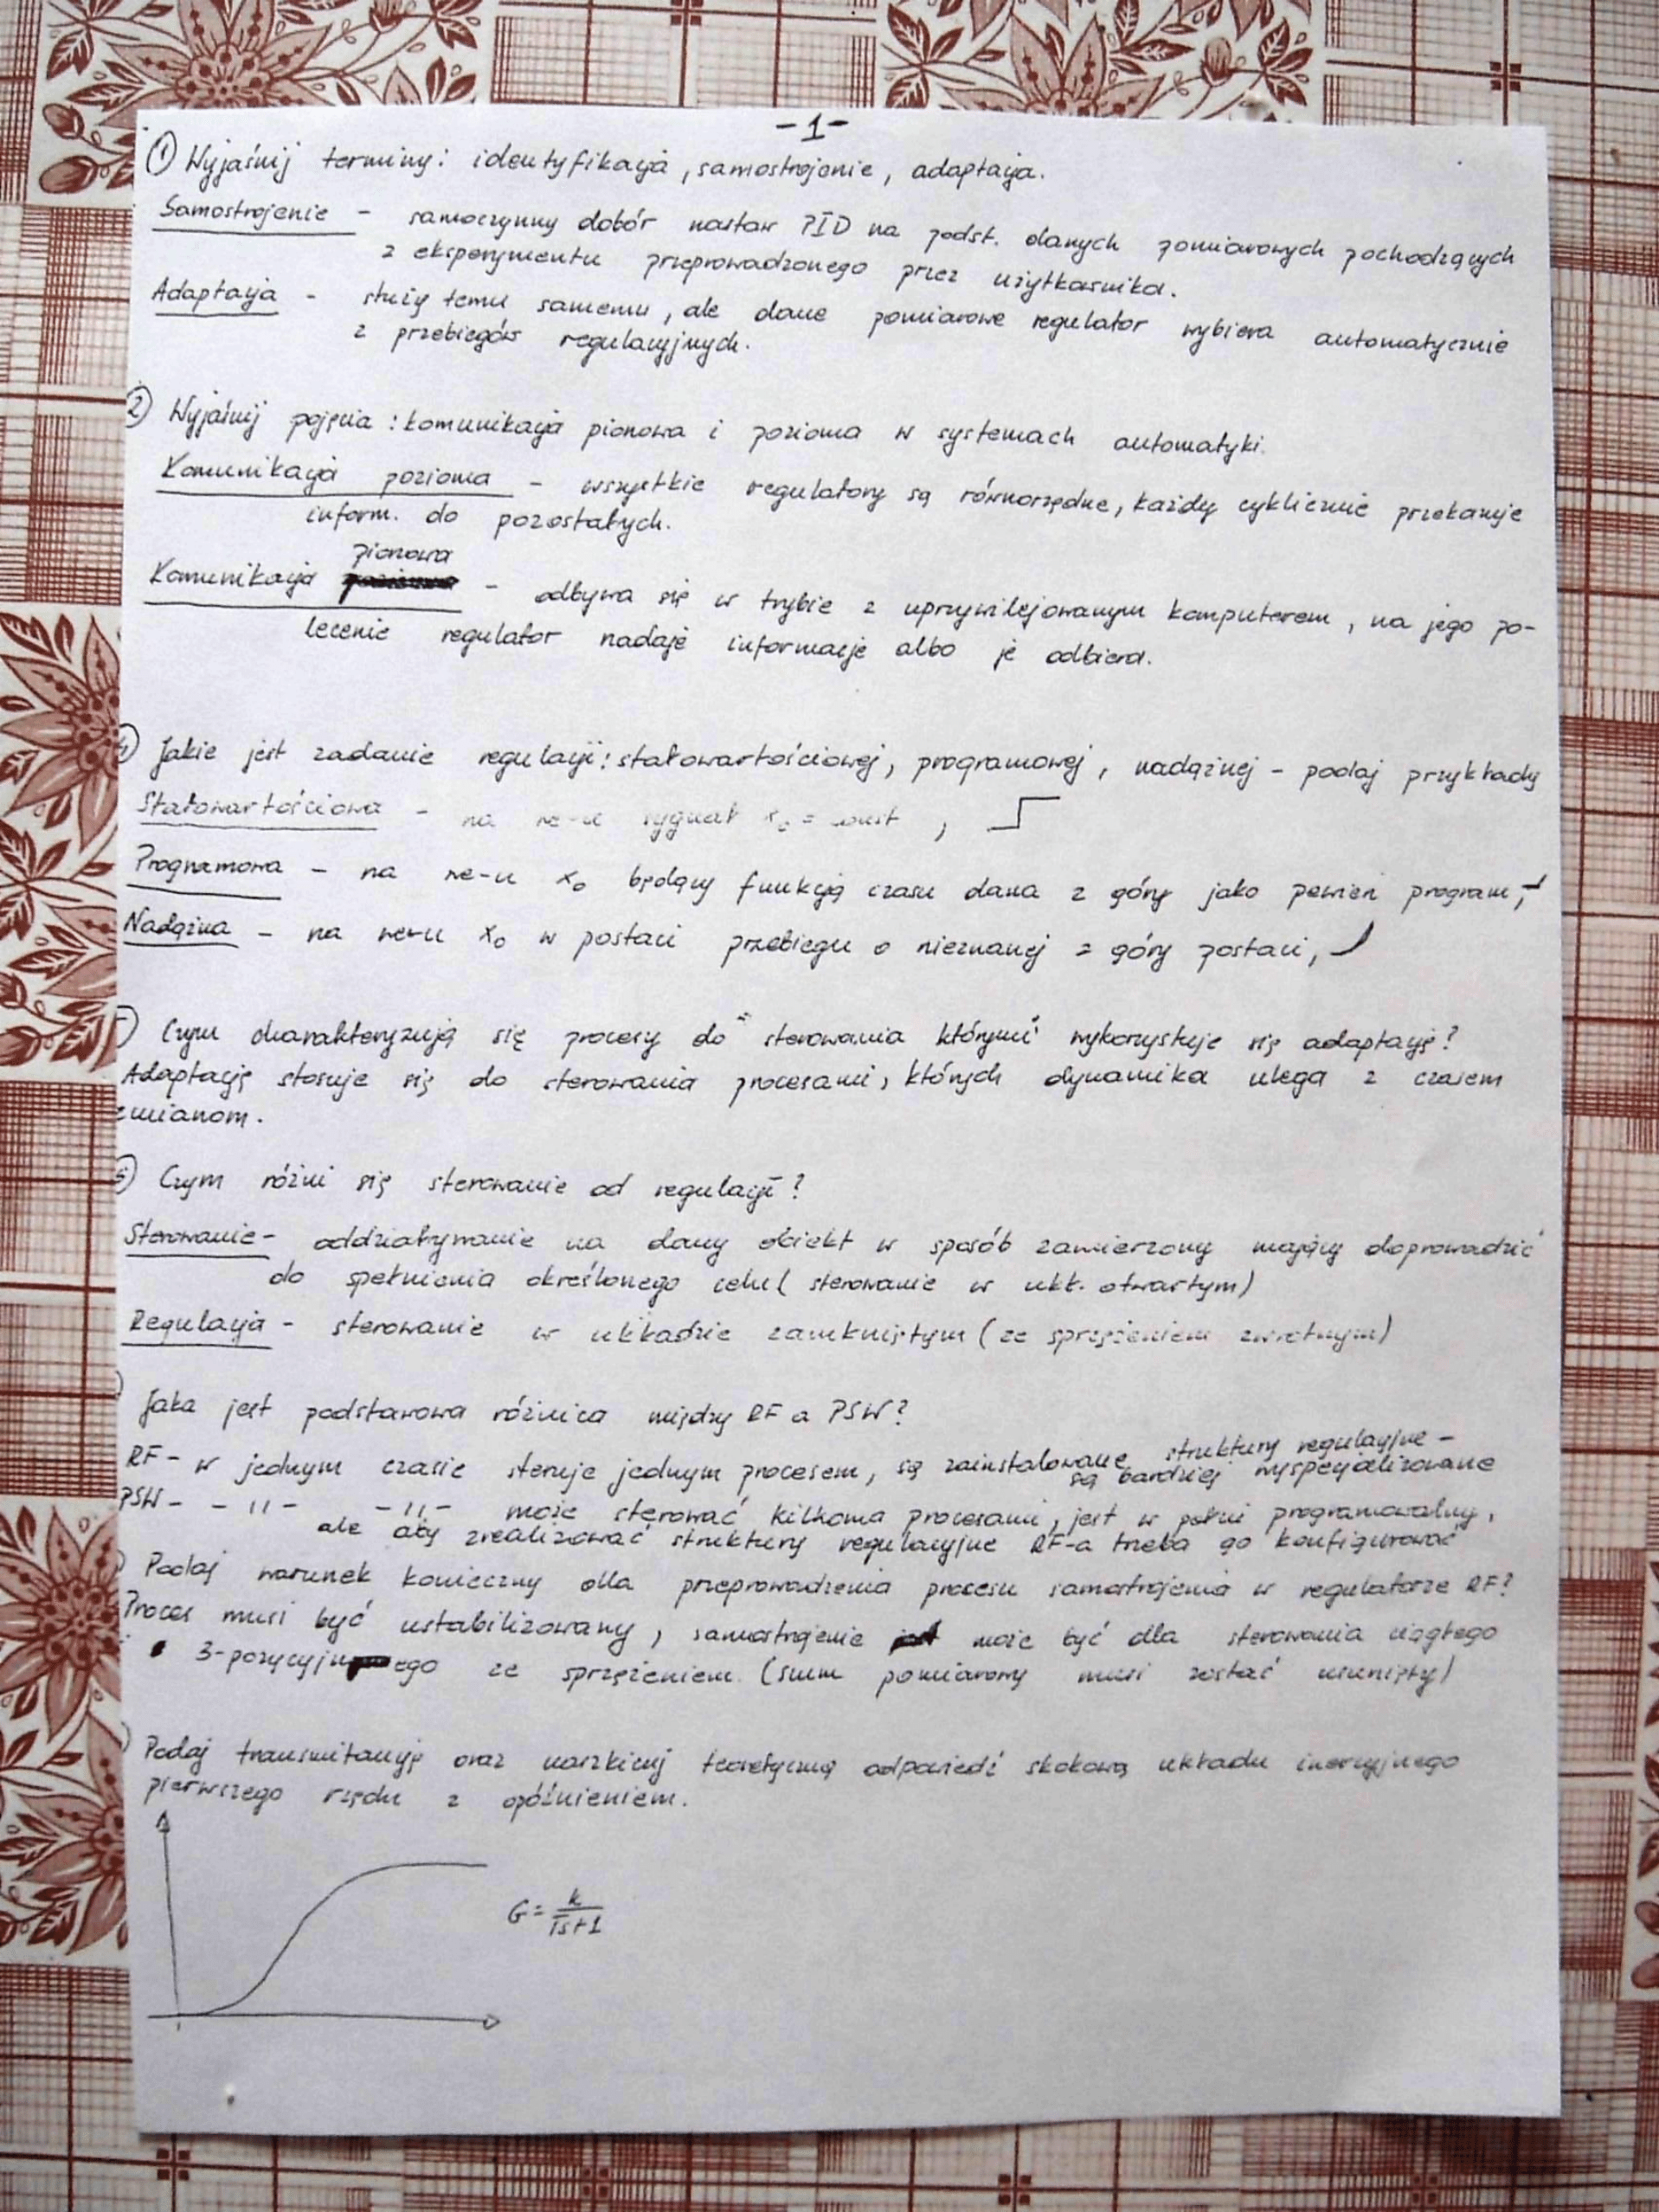 -1-
① Wyjaśnij terminy: identyfikacja, samostrojenie, adaptacja.
Samostrojenie - samoczynny dobór nastaw PID na podst. danych pomiarowych pochodzących
z eksperymentu przeprowadzonego przez użytkownika.
Adaptacja - służy temu samemu, ale dane pomiarowe regulator wybiera automatycznie
z przebiegów regulacyjnych.
② Wyjaśnij pojęcia: komunikacja pionowa i pozioma w systemach automatyki.
Komunikacja pozioma - wszystkie regulatory są równorzędne, każdy cyklicznie przekazuje
inform. do pozostałych.
pionowa
Komunikacja - odbywa się w trybie z uprzywilejowanym komputerem, na jego po-
lecenie regulator nadaje informacje albo je odbiera.
Jakie jest zadanie regulacji: stałowartościowej, programowej, nadążnej - podaj przykłady
Stałowartościowa - na we-u sygnał x₀ = const,
Programowa - na we-u x₀ będący funkcją czasu dana z góry jako pewien program,
Nadążna - na we-u x₀ w postaci przebiegu o nieznanej z góry postaci,
Czym charakteryzują się procesy do sterowania którymi wykorzystuje się adaptację?
Adaptację stosuje się do sterowania procesami, których dynamika ulega z czasem
zmianom.
Czym różni się sterowanie od regulacji?
Sterowanie - oddziaływanie na dany obiekt w sposób zamierzony mający doprowadzić
do spełnienia określonego celu (sterowanie w ukł. otwartym)
Regulacja - sterowanie w układzie zamkniętym (ze sprzężeniem zwrotnym)
Jaka jest podstawowa różnica między RF a PSW?
RF - w jednym czasie steruje jednym procesem, są zainstalowane struktury regulacyjne -
są bardziej wyspecjalizowane
PSW - -11- -11- może sterować kilkoma procesami, jest w pełni programowalny,
ale aby zrealizować struktury regulacyjne RF-a trzeba go konfigurować
Podaj warunek konieczny dla przeprowadzenia procesu samostrojenia w regulatorze RF?
Proces musi być ustabilizowany, samostrojenie może być dla sterowania ciągłego
i 3-pozycyjnego ze sprzężeniem. (szum pomiarowy musi zostać usunięty)
Podaj transmitancję oraz naszkicuj teoretyczną odpowiedź skokową układu inercyjnego
pierwszego rzędu z opóźnieniem.
G = k/Ts+1